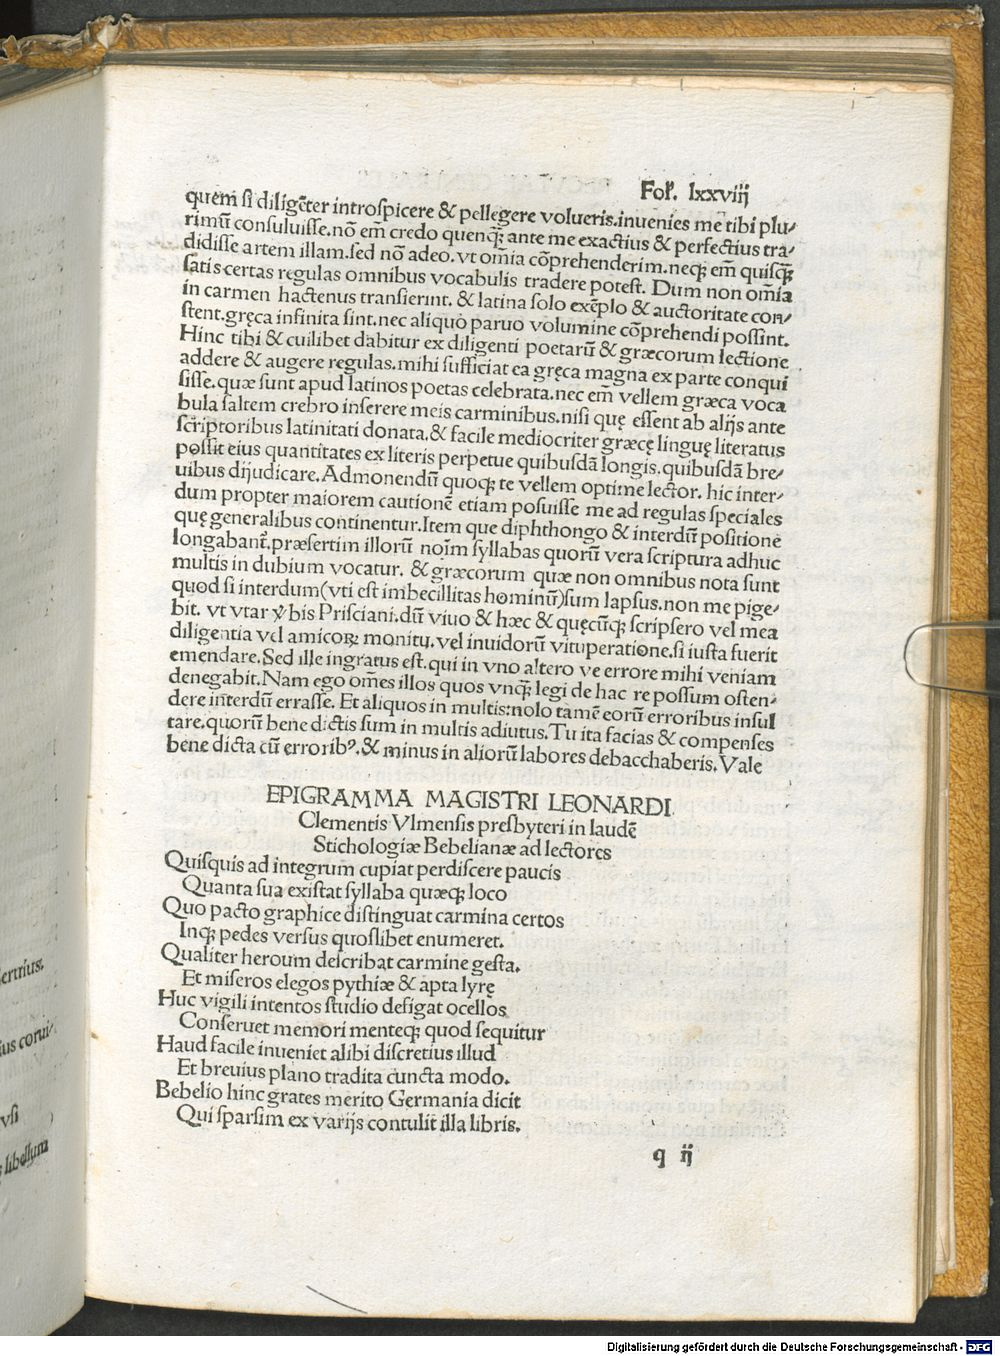 Fol. lxxviij
quem si diligēter introspicere & pellegere volueris. inuenies me tibi plu/
rimū consuluisse. nō em̄ credo quenqȝ ante me exactius & perfectius tra/
didisse artem illam. sed nō adeo. vt om̄ia cōprehenderim. neqȝ em̄ quisqȝ̄
satis certas regulas omnibus vocabulis tradere potest. Dum non om̄ia
in carmen hactenus transierint. & latina solo exēplo & auctoritate con/
stent. gręca infinita sint. nec aliquo paruo volumine cōprehendi possint.
Hinc tibi & cuilibet dabitur ex diligenti poetarū & græcorum lectione
addere & augere regulas. mihi sufficiat ea gręca magna ex parte conqui
sisse. quæ sunt apud latinos poetas celebrata. nec em̄ vellem græca voca
bula saltem crebro inserere meis carminibus. nisi quę essent ab alijs ante
scriptoribus latinitati donata. & facile mediocriter græcę linguę literatus
possit eius quantitates ex literis perpetue quibusdā longis. quibusdā bre/
uibus dijudicare. Admonendū quoqȝ te vellem optime lector. hic inter/
dum propter maiorem cautionē etiam posuisse me ad regulas speciales
quę generalibus continentur. Item que diphthongo & interdū positione
longabant᷑. præsertim illorū noīm syllabas quorū vera scriptura adhuc
multis in dubium vocatur. & græcorum quæ non omnibus nota sunt
quod si interdum (vti est imbecillitas hominū) sum lapsus. non me pige/
bit. vt vtar v̾bis Prisciani. dū viuo & hæc & quęcūqȝ scripsero vel mea
diligentia vel amicoꝝ monitu. vel inuidorū vituperatione. si iusta fuerit
emendare. Sed ille ingratus est. qui in vno altero ve errore mihi veniam
denegabit. Nam ego om̄es illos quos vnqȝ̄ legi de hac re possum osten/
dere interdū errasse. Et aliquos in multis: nolo tamē eorū erroribus insul
tare. quorū bene dictis sum in multis adiutus. Tu ita facias & compenses
bene dicta cū errorib⁹. & minus in aliorū labores debacchaberis. Vale
EPIGRAMMA MAGISTRI LEONARDI
Clementis Vlmensis presbyteri in laudē
Stichologiæ Bebelianæ ad lectores
Quisquis ad integrum cupiat perdiscere paucis
Quanta sua existat syllaba quæqȝ loco
Quo pacto graphice distinguat carmina certos
Inqȝ pedes versus quoslibet enumeret.
Qualiter heroum describat carmine gesta.
Et miseros elegos pythiæ & apta lyrę
Huc vigili intentos studio defigat ocellos
Conseruet memori menteqȝ quod sequitur
Haud facile inueniet alibi discretius illud
Et breuius plano tradita cuncta modo.
Bebelio hinc grates merito Germania dicit
Qui sparsim ex varijs contulit illa libris.
q ij
ius corui/
vsi
libellum
Digitalisierung gefördert durch die Deutsche Forschungsgemeinschaft - DFG